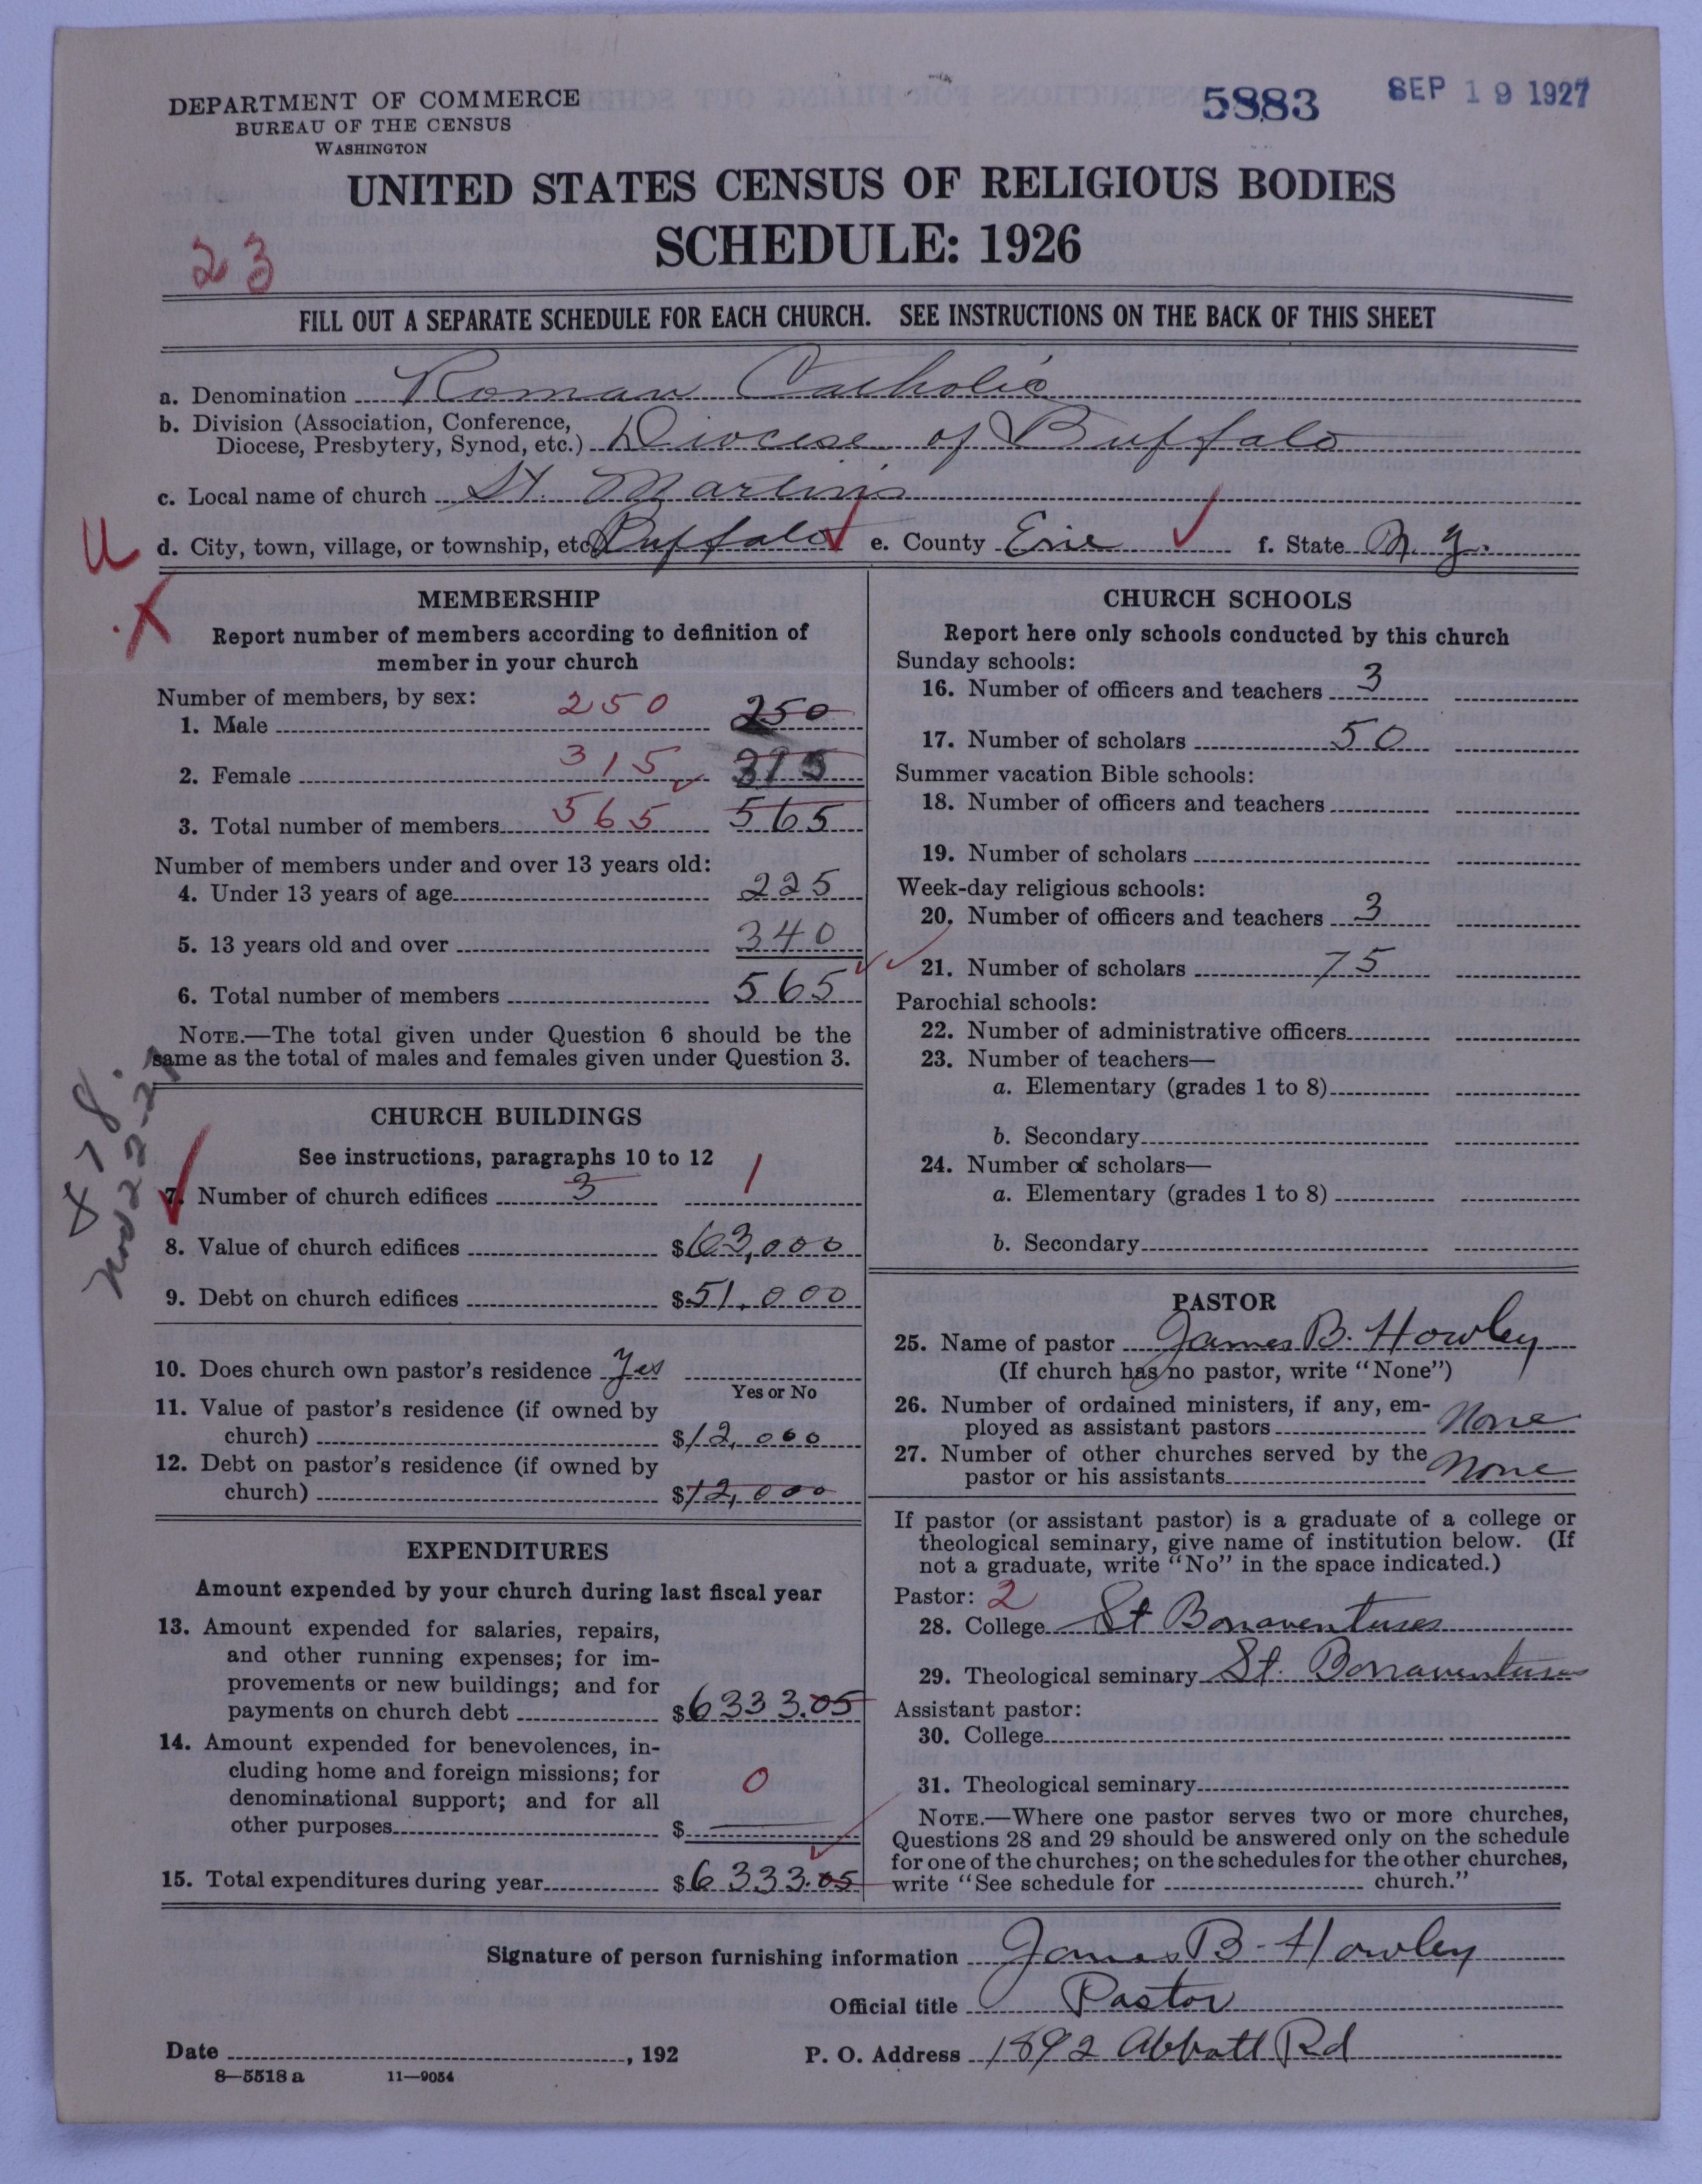 DEPARTMENT OF COMMERCE
BUREAU OF THE CENSUS
WASHINGTON
5883
SEP 19 1927
UNITED STATES CENSUS OF RELIGIOUS BODIES
SCHEDULE: 1926
23
FILL OUT A SEPARATE SCHEDULE FOR EACH CHURCH. SEE INSTRUCTIONS ON THE BACK OF THIS SHEET
a. Denomination Roman Catholic
b. Division (Association, Conference,
Diocese, Presbytery, Synod, etc.) Diocese of Buffalo
c. Local name of church St. Martin's
U
d. City, town, village, or township, etc. Buffalo e. County Erie f. State N. Y.
X
MEMBERSHIP
Report number of members according to definition of
member in your church
Number of members, by sex:
1. Male 250 250
2. Female 315 315
3. Total number of members 565 565
Number of members under and over 13 years old:
4. Under 13 years of age 225
5. 13 years old and over 340
6. Total number of members 565
NOTE.—The total given under Question 6 should be the
same as the total of males and females given under Question 3.
CHURCH BUILDINGS
See instructions, paragraphs 10 to 12
7. Number of church edifices 3 1
8. Value of church edifices $63,000
9. Debt on church edifices $51,000
10. Does church own pastor's residence Yes
Yes or No
11. Value of pastor's residence (if owned by
church) $12,000
12. Debt on pastor's residence (if owned by
church) $12,000
EXPENDITURES
Amount expended by your church during last fiscal year
13. Amount expended for salaries, repairs,
and other running expenses; for im-
provements or new buildings; and for
payments on church debt $6333.05
14. Amount expended for benevolences, in-
cluding home and foreign missions; for
denominational support; and for all
other purposes $ 0
15. Total expenditures during year $6333.05
CHURCH SCHOOLS
Report here only schools conducted by this church
Sunday schools:
16. Number of officers and teachers 3
17. Number of scholars 50
Summer vacation Bible schools:
18. Number of officers and teachers
19. Number of scholars
Week-day religious schools:
20. Number of officers and teachers 3
21. Number of scholars 75
Parochial schools:
22. Number of administrative officers
23. Number of teachers—
a. Elementary (grades 1 to 8)
b. Secondary
24. Number of scholars—
a. Elementary (grades 1 to 8)
b. Secondary
PASTOR
25. Name of pastor James B. Howley
(If church has no pastor, write "None")
26. Number of ordained ministers, if any, em-
ployed as assistant pastors None
27. Number of other churches served by the
pastor or his assistants None
If pastor (or assistant pastor) is a graduate of a college or
theological seminary, give name of institution below. (If
not a graduate, write "No" in the space indicated.)
Pastor: 2
28. College St Bonaventures
29. Theological seminary St. Bonaventures
Assistant pastor:
30. College
31. Theological seminary
NOTE.—Where one pastor serves two or more churches,
Questions 28 and 29 should be answered only on the schedule
for one of the churches; on the schedules for the other churches,
write "See schedule for church."
Signature of person furnishing information James B. Howley
Official title Pastor
Date , 192 P. O. Address 1892 Abbott Rd
8—5518 a 11—9054